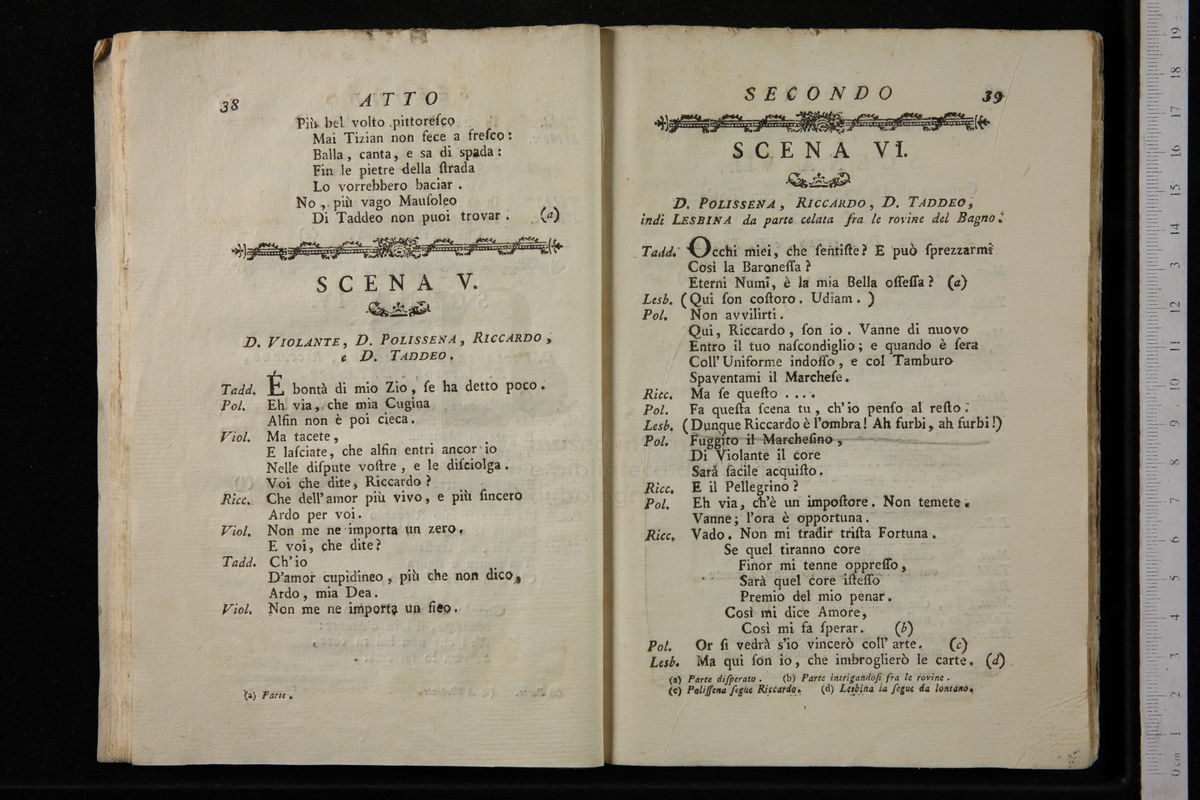 38 ATTO
Più bel volto pittoreſco
Mai Tizian non fece a freſco :
Balla, canta, e sa di spada :
Fin le pietre della ſtrada
Lo vorrebbero baciar .
No , più vago Mauſoleo
Di Taddeo non puoi trovar . (a)
SCENA V.
D. VIOLANTE, D. POLISSENA, RICCARDO ,
e D. TADDEO .
Tadd. È bontà di mio Zio , ſe ha detto poco .
Pol. Eh via, che mia Cugina
Alfin non è poi cieca .
Viol. Ma tacete ,
E laſciate, che alfin entri ancor io
Nelle diſpute voſtre , e le diſciolga .
Voi che dite, Riccardo ?
Ricc. Che dell' amor più vivo, e più ſincero
Ardo per voi .
Viol. Non me ne importa un zero .
E voi, che dite ?
Tadd. Ch'io
D'amor cupidineo , più che non dico ,
Ardo , mia Dea .
Viol. Non me ne importa un fico .
(a) Parte .
SECONDO 39
SCENA VI.
D. POLISSENA, RICCARDO, D. TADDEO,
indi LESBINA da parte celata fra le rovine del Bagno .
Tadd. Occhi miei, che ſentiſte? E può ſprezzarmi
Così la Baroneſſa ?
Eterni Numi, è la mia Bella offeſſa ? (a)
Lesb. (Qui ſon coſtoro. Udiam . )
Pol. Non avvilirti .
Qui, Riccardo, ſon io . Vanne di nuovo
Entro il tuo naſcondiglio ; e quando è ſera
Coll' Uniforme indoſſo , e col Tamburo
Spaventami il Marcheſe .
Ricc. Ma ſe queſto . . . .
Pol. Fa queſta ſcena tu , ch'io penſo al reſto .
Lesb. (Dunque Riccardo è l'ombra! Ah furbi, ah furbi!)
Pol. Fuggito il Marcheſino ,
Di Violante il core
Sarà facile acquiſto .
Ricc. E il Pellegrino ?
Pol. Eh via, ch'è un impoſtore . Non temete .
Vanne ; l'ora è opportuna .
Ricc. Vado . Non mi tradir triſta Fortuna .
Se quel tiranno core
Finor mi tenne oppreſſo ,
Sarà quel core iſteſſo
Premio del mio penar .
Così mi dice Amore,
Così mi fa ſperar . (b)
Pol. Or ſi vedrà s'io vincerò coll' arte . (c)
Lesb. Ma qui ſon io , che imbroglierò le carte . (d)
(a) Parte diſperato . (b) Parte intrigandoſi fra le rovine .
(c) Poliſſena ſegue Riccardo. (d) Lesbina la ſegue da lontano.
0 cm 1 2 3 4 5 6 7 8 9 10 11 12 13 14 15 16 17 18 19